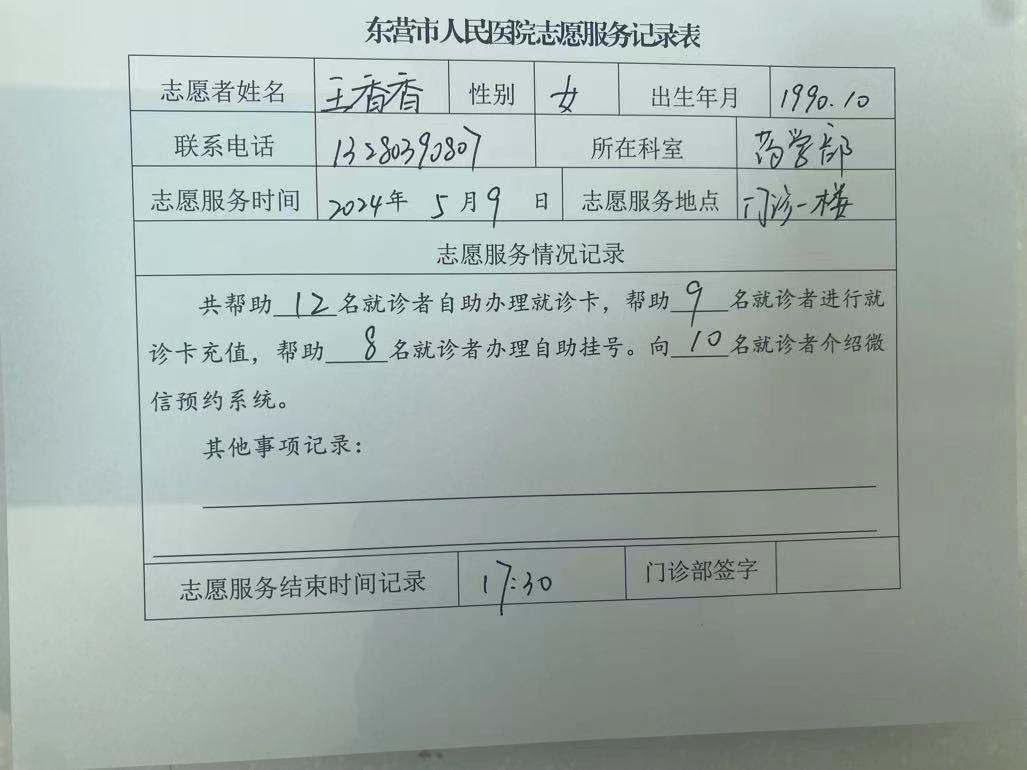 东营市人民医院志愿服务记录表
志愿者姓名 王香香 性别 女 出生年月 1990.10
联系电话 13280390807 所在科室 药学部
志愿服务时间 2024年 5月9日 志愿服务地点 门诊一楼
志愿服务情况记录
共帮助12名就诊者自助办理就诊卡，帮助9名就诊者进行就
诊卡充值，帮助8名就诊者办理自助挂号。向10名就诊者介绍微
信预约系统。
其他事项记录：
志愿服务结束时间记录 17:30 门诊部签字